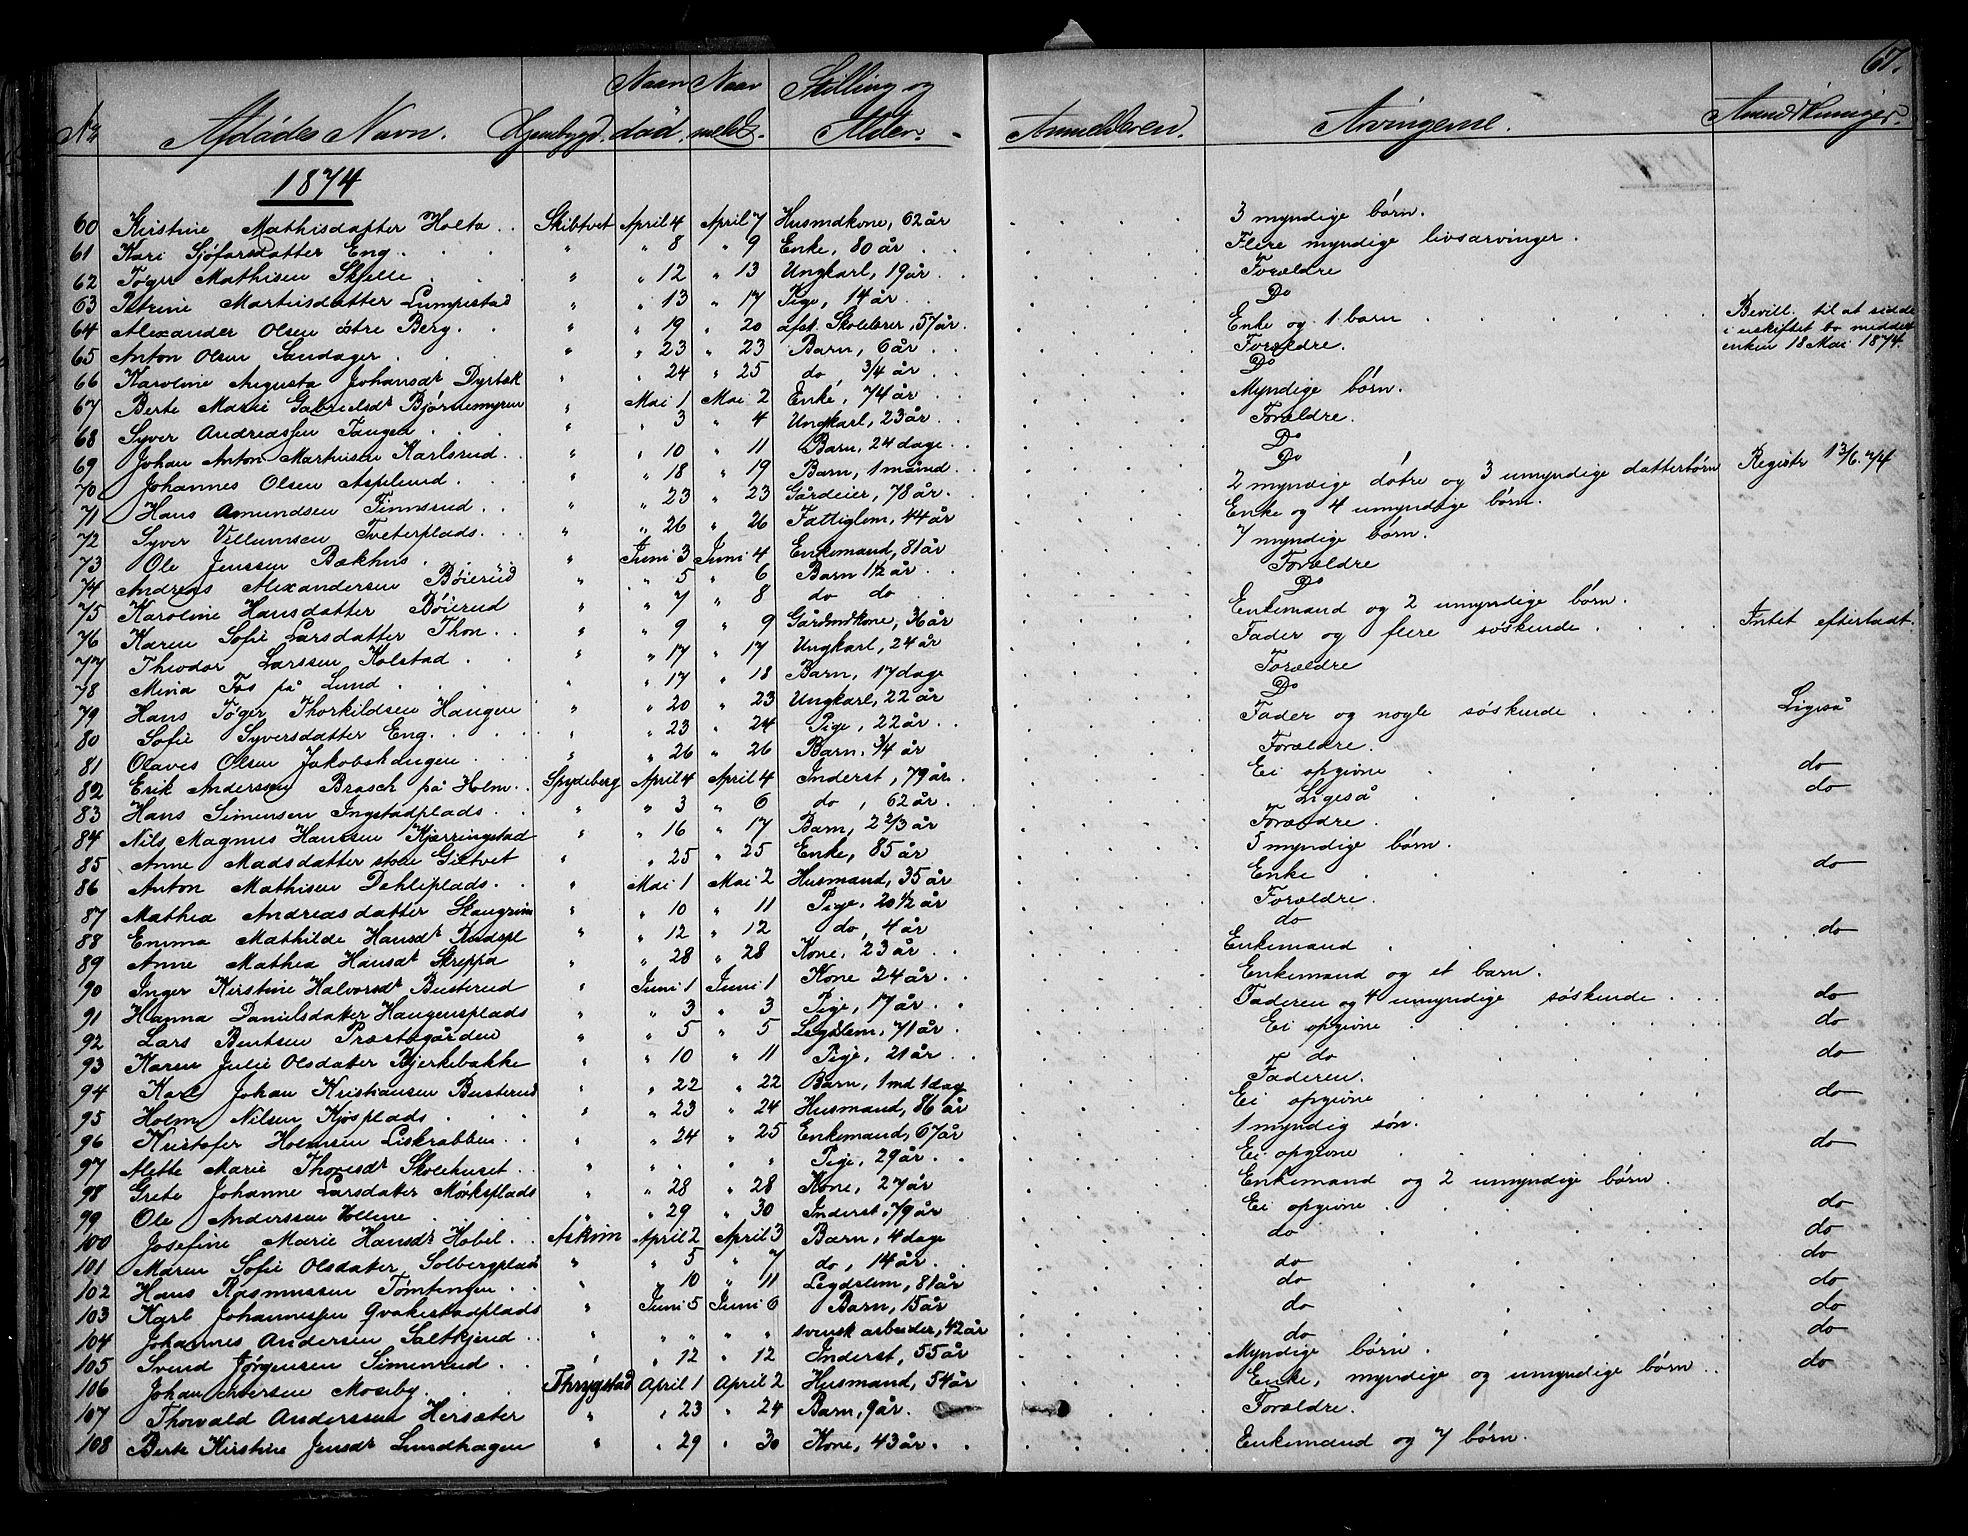 67.
No Afdødes Navn. Hjembygd. Naar død. Naar meldt. Stilling og Alder. Anmelderen. Arvingerne. Anmærkninger.
1874
60 Kirstine Mathisdatter Holta Skibtvet April 4 April 7 Husmdkone, 62 år 3 myndige børn.
61 Kari Sjøfarsdatter Eng " " 8 " 9 Enke, 80 år Flere myndige livsarvinger.
62 Tøger Mathisen Skjelle " " 12 " 13 Ungkarl, 19 år Forældre
63 Petrine Martinsdatter Lumpestad " " 13 " 17 Pige, 14 år Do
64 Alexander Olsen østre Berg " " 19 " 20 afsk. Skolelærer, 57 år Enke og 1 barn Bevill. til at sidde i uskiftet bo meddelt enken 18 Mai 1874.
65 Anton Olsen Sandager " " 23 " 23 Barn, 6 år Forældre.
66 Karoline Augusta Johansdt Dyrbæk " " 24 " 25 do, 3/4 år Do
67 Berte Marie Gabrielsdt Bjørnemyren " Mai 1 Mai 2 Enke, 74 år Myndige børn.
68 Syver Andreassen Tangen " " 3 " 4 Ungkarl, 23 år Forældre.
69 Johan Anton Martinsen Karlsrud " " 10 " 11 Barn, 24 dage Do
70 Johannes Olsen Asplund " " 18 " 19 Barn, 1 månd Do
71 Hans Amundsen Finnsrud " " 23 " 23 Gårdeier, 78 år 2 myndige døtre og 3 umyndige datterbørn Registr 13/6. 74
72 Syver Villumsen Tveterplads " " 26 " 26 Fattiglem, 44 år Enke og 4 umyndige børn.
73 Ole Jenssen Bækhus " Juni 3 Juni 4 Enkemand, 81 år 7 myndige børn.
74 Andreas Alexandersen Bøierud " " 5 " 6 Barn 1 1/2 år Forældre
75 Karoline Hansdatter Bøierud " " 7 " 8 do do Do
76 Karen Sofie Larsdatter Thon " " 9 " 9 Gårdmdkone, 36 år Enkemand og 2 umyndige børn.
77 Theodor Larssen Kolstad " " 17 " 17 Ungkarl, 24 år Fader og flere søskende Intet efterladt.
78 Mina Fos på Lund " " 17 " 18 Barn, 17 dage Forældre
79 Hans Tøger Thorkildsen Haugen " " 20 " 23 Ungkarl, 22 år Do
80 Sofie Syversdatter Eng " " 23 " 24 Pige, 22 år Fader og nogle søskende Ligeså
81 Olaves Olsen Jakobshaugen " " 26 " 26 Barn, 3/4 år Forældre.
82 Erik Anderssen Brasch på Holm Spydeberg April 4 April 4 Inderst, 79 år Ei opgivne do
83 Hans Simensen Ingstadplads " " 3 " 6 do, 62 år Ligeså do
84 Nils Magnus Hanssen Kjerringstad " " 16 " 17 Barn, 2 2/3 år Forældre.
85 Anne Madsdatter store Gietvet " " 25 " 25 Enke, 85 år 5 myndige børn.
86 Anton Mathisen Dehliplads " Mai 1 Mai 2 Husmand, 35 år Enke do
87 Mathea Andreasdatter Skaugrim " " 10 " 11 Pige, 20 1/2 år Forældre.
88 Emma Mathilde Hansdt Rudspl " " 12 " 12 do, 4 år do
89 Anne Mathea Hansdt Skreppa " " 28 " 28 Kone, 23 år Enkemand do
90 Inger Kirstine Halvorsdt Busterud " Juni 1 Juni 1 Kone 24 år Enkemand og et barn.
91 Hanna Danielsdater Haugensplads " " 3 " 3 Pige, 17 år Faderen og 4 umyndige søskende do
92 Lars Bentsen Præstegården " " 5 " 5 Legdslem, 71 år Ei opgivne do
93 Karen Julie Olsdater Bjerkebakke " " 10 " 11 Pige, 21 år do do
94 Karl Johan Kristiansen Busterud " " 22 " 22 Barn, 1 md 1 dag Faderen.
95 Holm Nilsen Kjosplads " " 23 " 24 Husmand, 86 år Ei opgivne do
96 Kristofer Holmsen Liskrabben " " 24 " 25 Enkemand, 67 år 1 myndig søn.
97 Alette Marie Thoresdt Skolehuset " " " " " Pige, 29 år Ei opgivne do
98 Grete Johanne Larsdater Mørksplads " " 28 " 28 Kone, 27 år Enkemand og 2 umyndige børn.
99 Ole Anderssen Hollene " " 29 " 30 Inderst, 79 år Ei opgivne do
100 Josefine Marie Hansdt Hobel Askim April 2 April 3 Barn, 4 dage do do
101 Maren Sofie Olsdater Solbergplads " " 5 " 7 do, 14 år do do
102 Hans Rasmussen Tømtengen " " 10 " 11 Legdslem, 81 år do do
103 Karl Johannessen Gvakestadplads " Juni 5 Juni 6 Barn, 15 år do do
104 Johannes Andersen Saltkjend " " " " " svensk arbeider, 42 år do do
105 Svend Jørgensen Simenrud " " 12 " 12 Inderst, 55 år Myndige børn.
106 Johan Iversen Moseby Thrygstad April 1 April 2 Husmand, 54 år Enke, myndige og umyndige børn do
107 Thorvald Anderssen Hersæter " " 23 " 24 Barn, 9 år. Forældre.
108 Berte Kirstine Jensdt Lundhagen " " 29 " 30 Kone, 43 år. Enkemand og 7 børn.